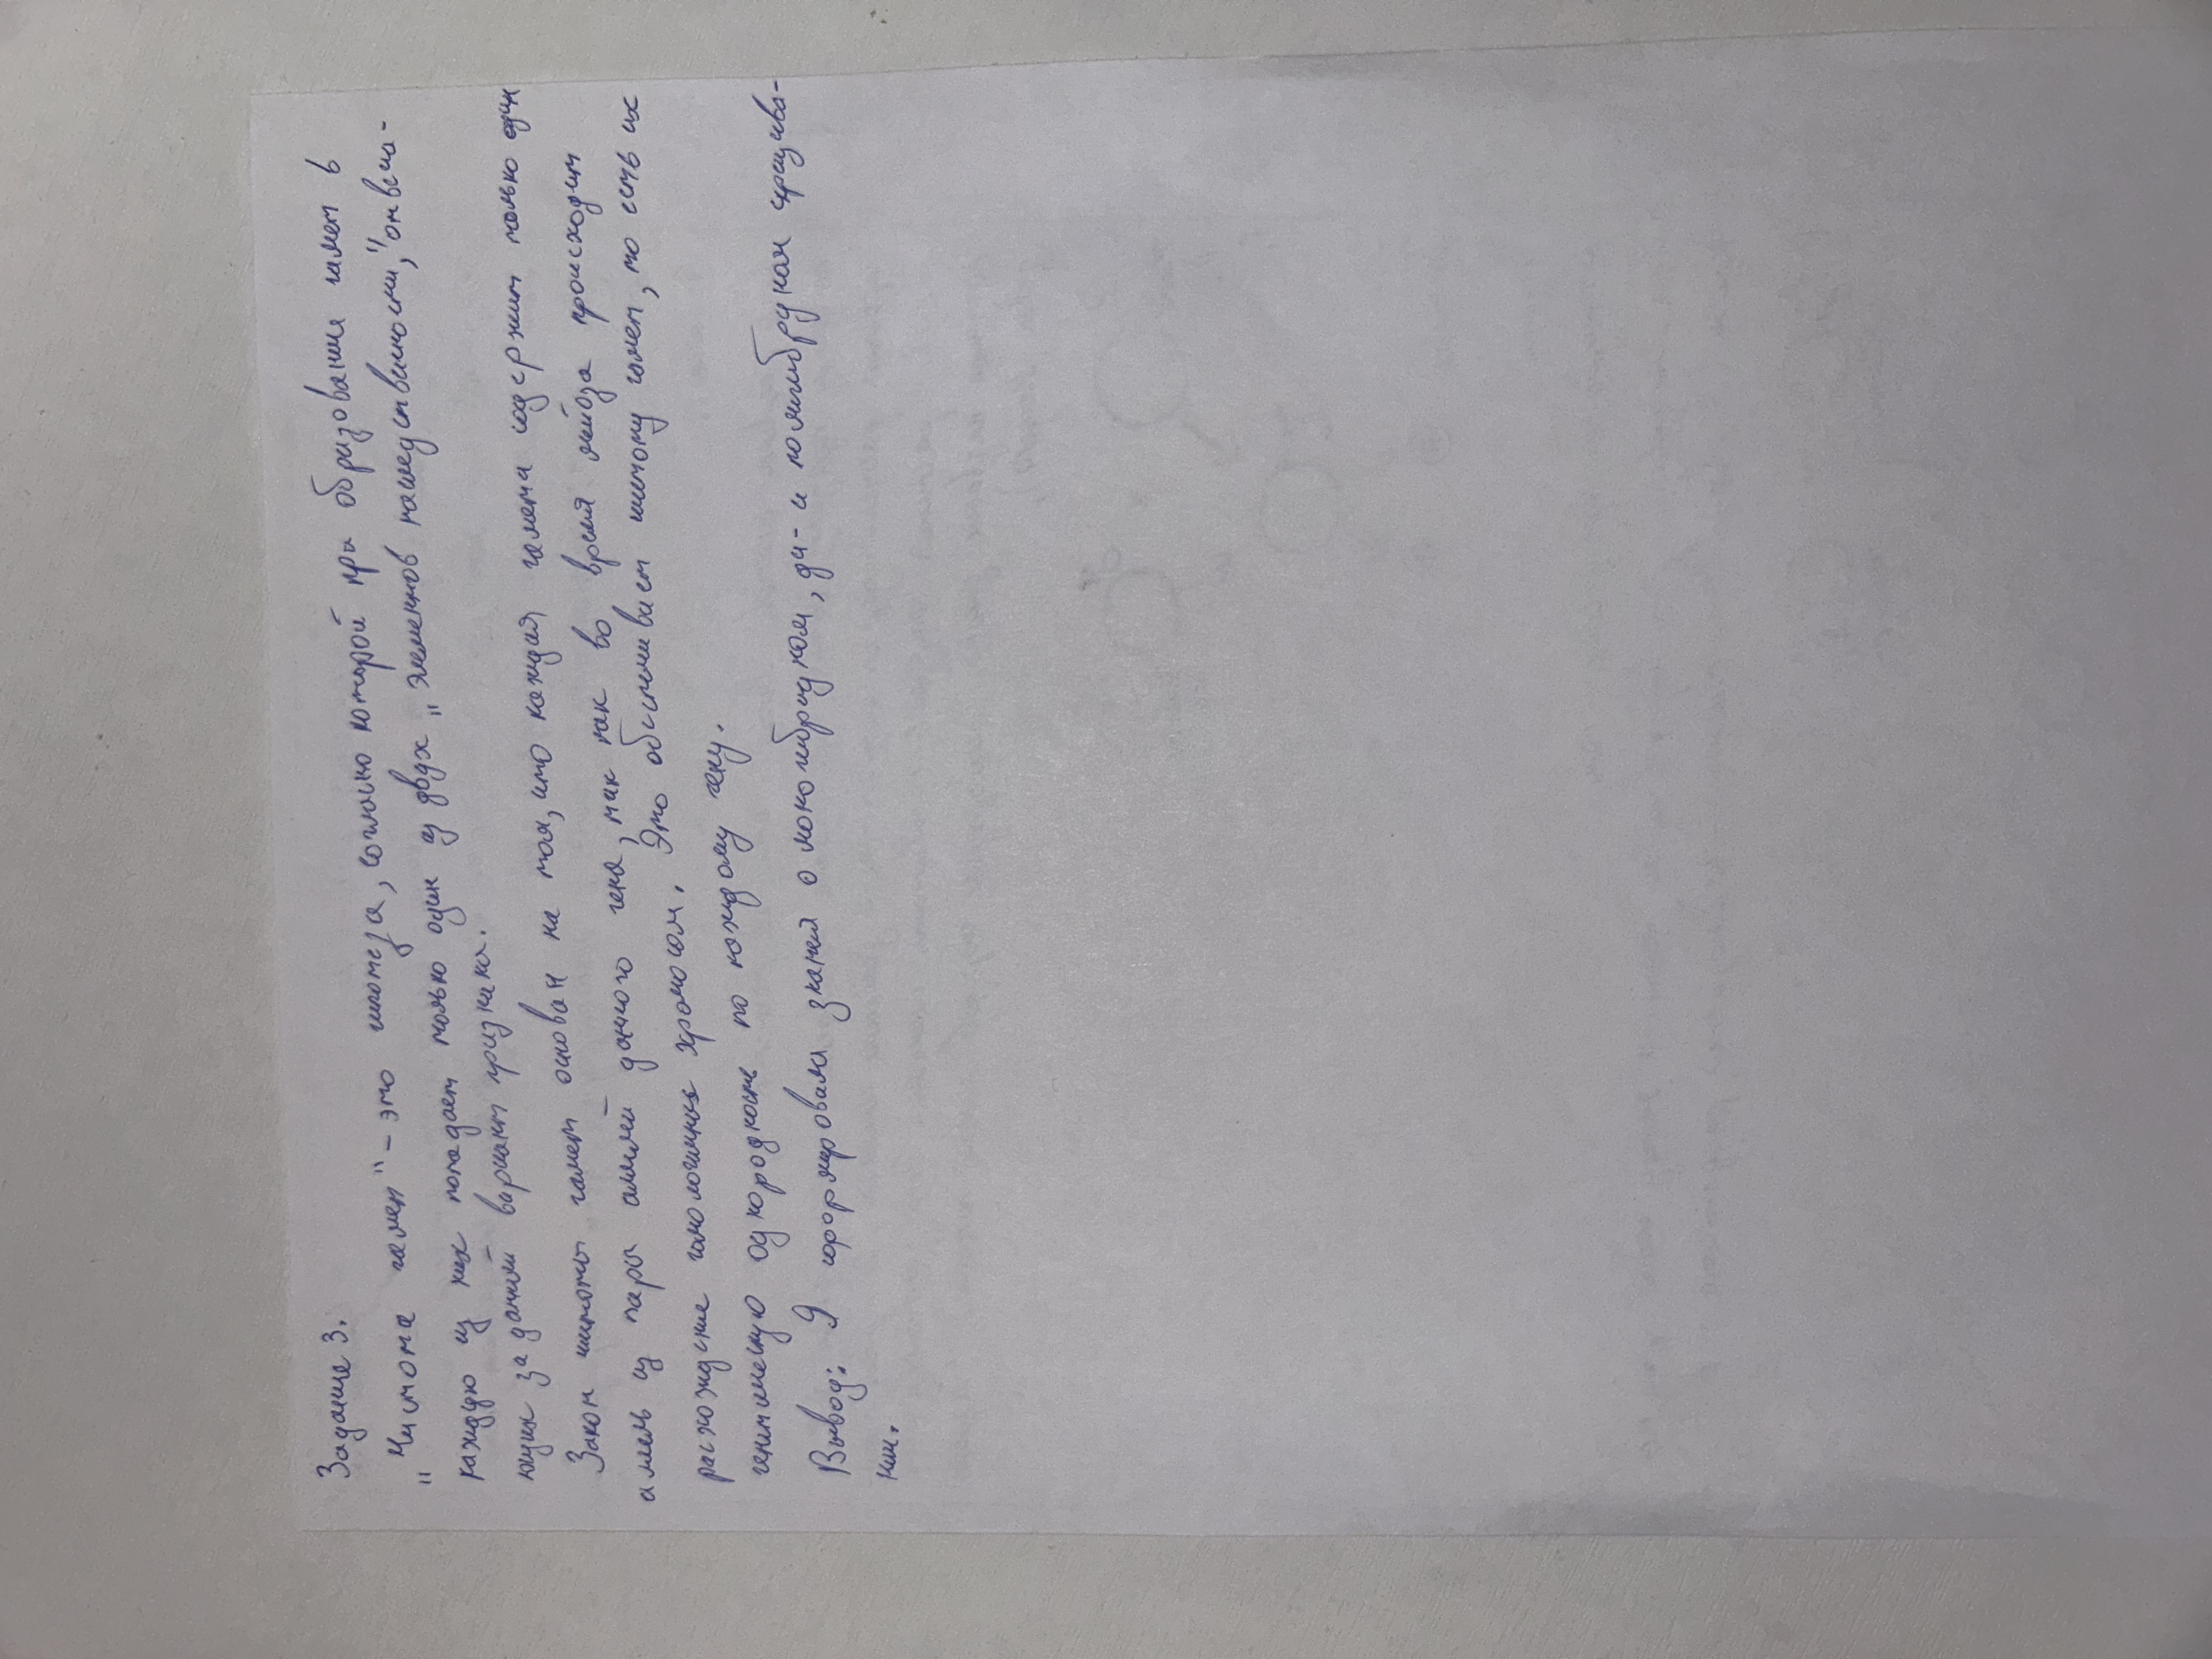 Задание 3.
"Чистота гамет" - это гипотеза, согласно которой при образовании гамет в
каждую из них попадает только один из двух "элементов наследственности," отвеча-
ющих за данный вариант признака.
Закон чистоты гамет основан на том, что каждая гамета содержит только один
аллель из пары аллелей данного гена, так как во время мейоза происходит
расхождение гомологичных хромосом. Это обеспечивает чистоту гамет, то есть их
генетическую однородность по каждому гену.
Вывод: Я сформировала знания о моногибридном, ди- и полигибридном скрещива-
нии.